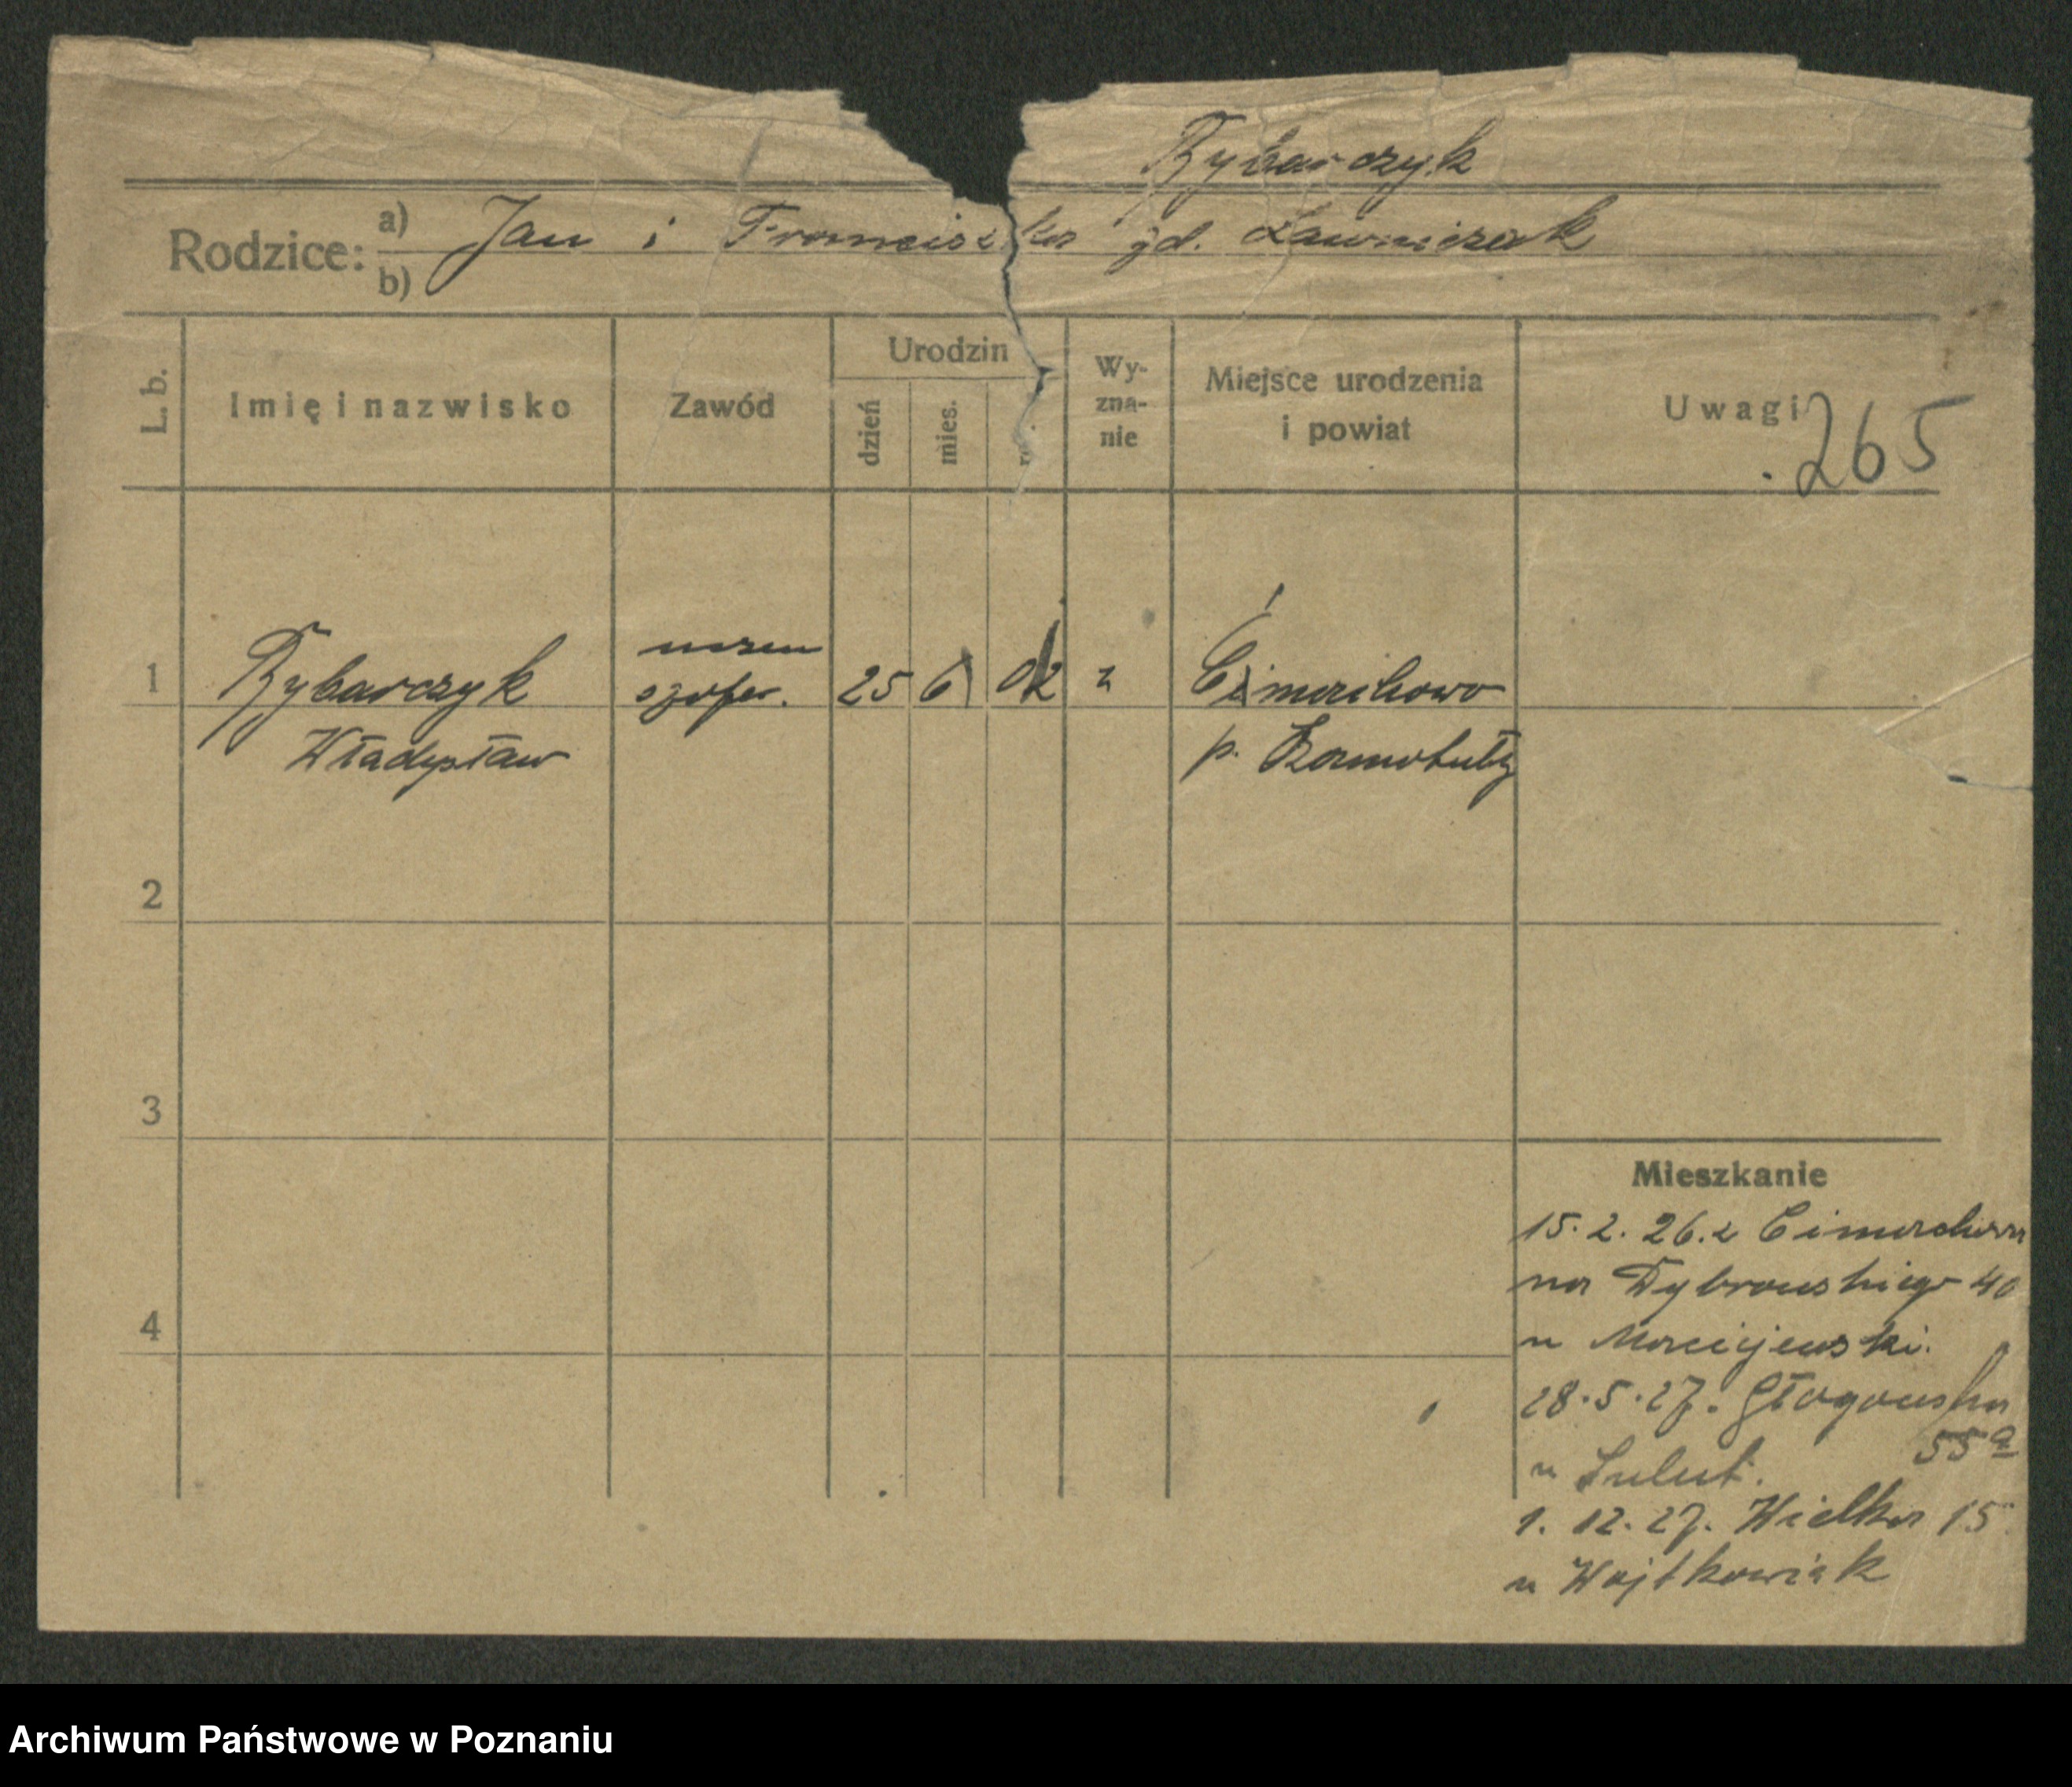 Rybarczyk
Rodzice: a) Jan i Franciszka zd. Ławniczak
b)
L. b.
Imię i nazwisko
Zawód
Urodzin
dzień
mies.
Wy-
zna-
nie
Miejsce urodzenia
i powiat
Uwagi
265
1
Rybarczyk
Władysław
uczeń
szofer.
25
6
02
p. Szamotuły
2
3
4
Mieszkanie
15. 2. 26. z
na Dąbrowskiego 40
u Maciejewski.
28. 5. 27. Głogowska
55a
u
1. 12. 27. Wielka 15
u Wojtkowiak
Archiwum Państwowe w Poznaniu